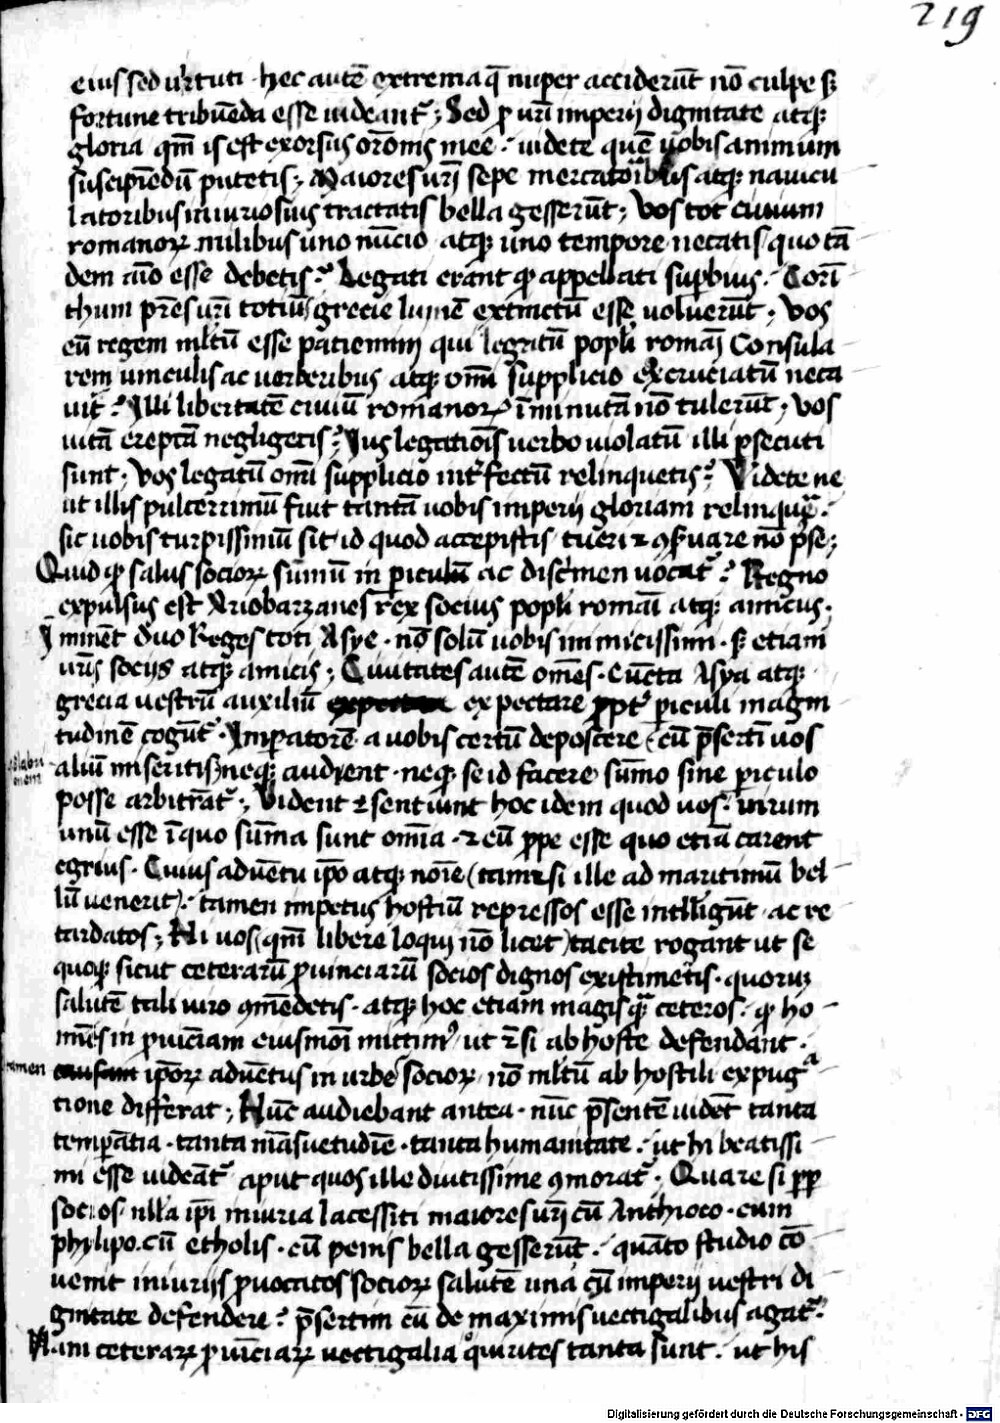 219
eius sed virtuti · hec autē extrema q̄ nuper acciderūt nō culpe sꝫ
fortune tribuēda esse uideant᷑ ; Sed ꝓ urī imperij dignitate atqꝫ
gloria qm̄ is est exorsus orōnis mee · uidete quē uobis animum
suscipiēdū putetis ; Maiores urī sepe mercatoribus atqꝫ nauicu
latoribus iniuriosius tractatis bella gesserūt ; Vos tot ciuium
romanorꝝ milibus uno nūcio atqꝫ uno tempore necatis quo tā
dem aīo esse debetis ? Legati erant ꝙ appellati suꝑbius · Corī
thum pr̄es urī totiū grecie lumē extinctū esse uoluerūt · Vos
eū regem inl̄tū esse patiemini qui legatū popl̄i romāi Consula
rem uinculis ac uerberibus atqꝫ om̄i supplicio excruciatū neca
uit ? Illi libertatē ciuiū romanorꝝ īminutā nō tulerūt ; vos
uitā ereptā negligetis ? Ius legatiōis uerbo uiolatū illi ꝑsecuti
sunt ; Vos legatū om̄i supplicio int᷑fectū relinquetis ? Videte ne
ut illis pulcerrimū fuit tantā uobis imperij gloriam relinquē̄ ·
sic uobis turpissimū sit id quod accepistis tueri ⁊ ꝯẜuare nō pōse ;
Quid ꝙ salus sociorꝝ sūmū in ꝑiculū ac discrimen uocat᷑ ? Regno
expulsus est Ariobarzanes rex socius popl̄i romāi atqꝫ amicus ·
Iminēt duo Reges toti Asye · nō solū uobis inimicissimi · sꝫ etiam
urīs socijs atqꝫ amicis ; Ciuitates autē omēs · Cūcta Asya atqꝫ
grecia uestrū auxiliū expectare ꝓpt᷑ ꝑiculi magni
tudinē cogūt᷑ · Imꝑatorē a uobis certū deposcere cū p̄sertī uos
aliū miseritis neqꝫ audent · neqꝫ se id facere sūmo sine ꝑiculo
posse arbitrāt᷑ ; Vident ⁊ sentiunt hoc idem quod uos · uirum
unū esse ī quo sūma sunt om̄ia · ⁊ eū ꝓpe esse quo etiā carent
egrius · Cuius aduētu ip̄o atqꝫ noīe (tametsi ille ad maritimū bel
lū uenerit) · tamen impetus hostiū repressos esse intll̄igūt ac re
tardatos ; Hi uos (qm̄ libere loqui nō licet) tacite rogant ut se
quoqꝫ sicut ceterarū ꝓuinciarū socios dignos existimetis · quorū
salutē tali uiro ꝯmēdetis · atqꝫ hoc etiam magis quā ceteros · ꝙ ho
mīes in ꝓuīciam eiusmōi mittimꝰ ut ⁊si ab hoste defendant ·
tamen ip̄orꝝ aduētus in urbes sociorꝝ nō ml̄tū ab hostili expugna
tione differat ; Hūc audiebant antea · nūc p̄sentē uidēt tanta
temꝑātia · tanta māsuetudīe · tanta humanitate · ut hi beatissi
mi esse uideāt᷑ aput quos ille diutissime ꝯmorat᷑ ; Quare si ꝓp
socios nll̄a ip̄i iniuria lacessiti maiores urī cū Anthioco · cum
phylipo · cū etholis · cū penis bella gesserūt · quāto studio cō
uenit iniurijs ꝓuocatos sociorꝝ salutē una cū imperij uestri di
gnitate defendere ? p̄sertim cū de maximis uectigalibus agat᷑
Nam ceterarꝝ ꝓuīciarꝝ uectigalia quirites tanta sunt · ut his
Digitalisierung gefördert durch die Deutsche Forschungsgemeinschaft - DFG